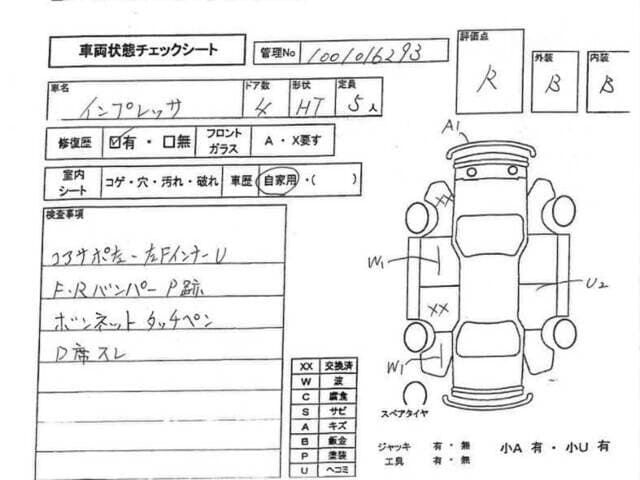 車両状態チェックシート
管理No 1001016293
評価点
R
外装
B
内装
B
車名
インプレッサ
ドア数
4
形状
HT
定員
5人
修復歴
☑有・□無
フロントガラス
A・X要す
室内シート
コゲ・穴・汚れ・破れ
車歴
自家用・( )
検査事項
コアサポ左-左FインナーU
F・Rバンパー P跡
ボンネットタッチペン
D席スレ
A1
XX
W1
XX
W1
U2
XX 交換済
W 波
C 腐食
S サビ
A キズ
B 鈑金
P 塗装
U ヘコミ
スペアタイヤ
ジャッキ 有・無
工具 有・無
小A 有・小U 有